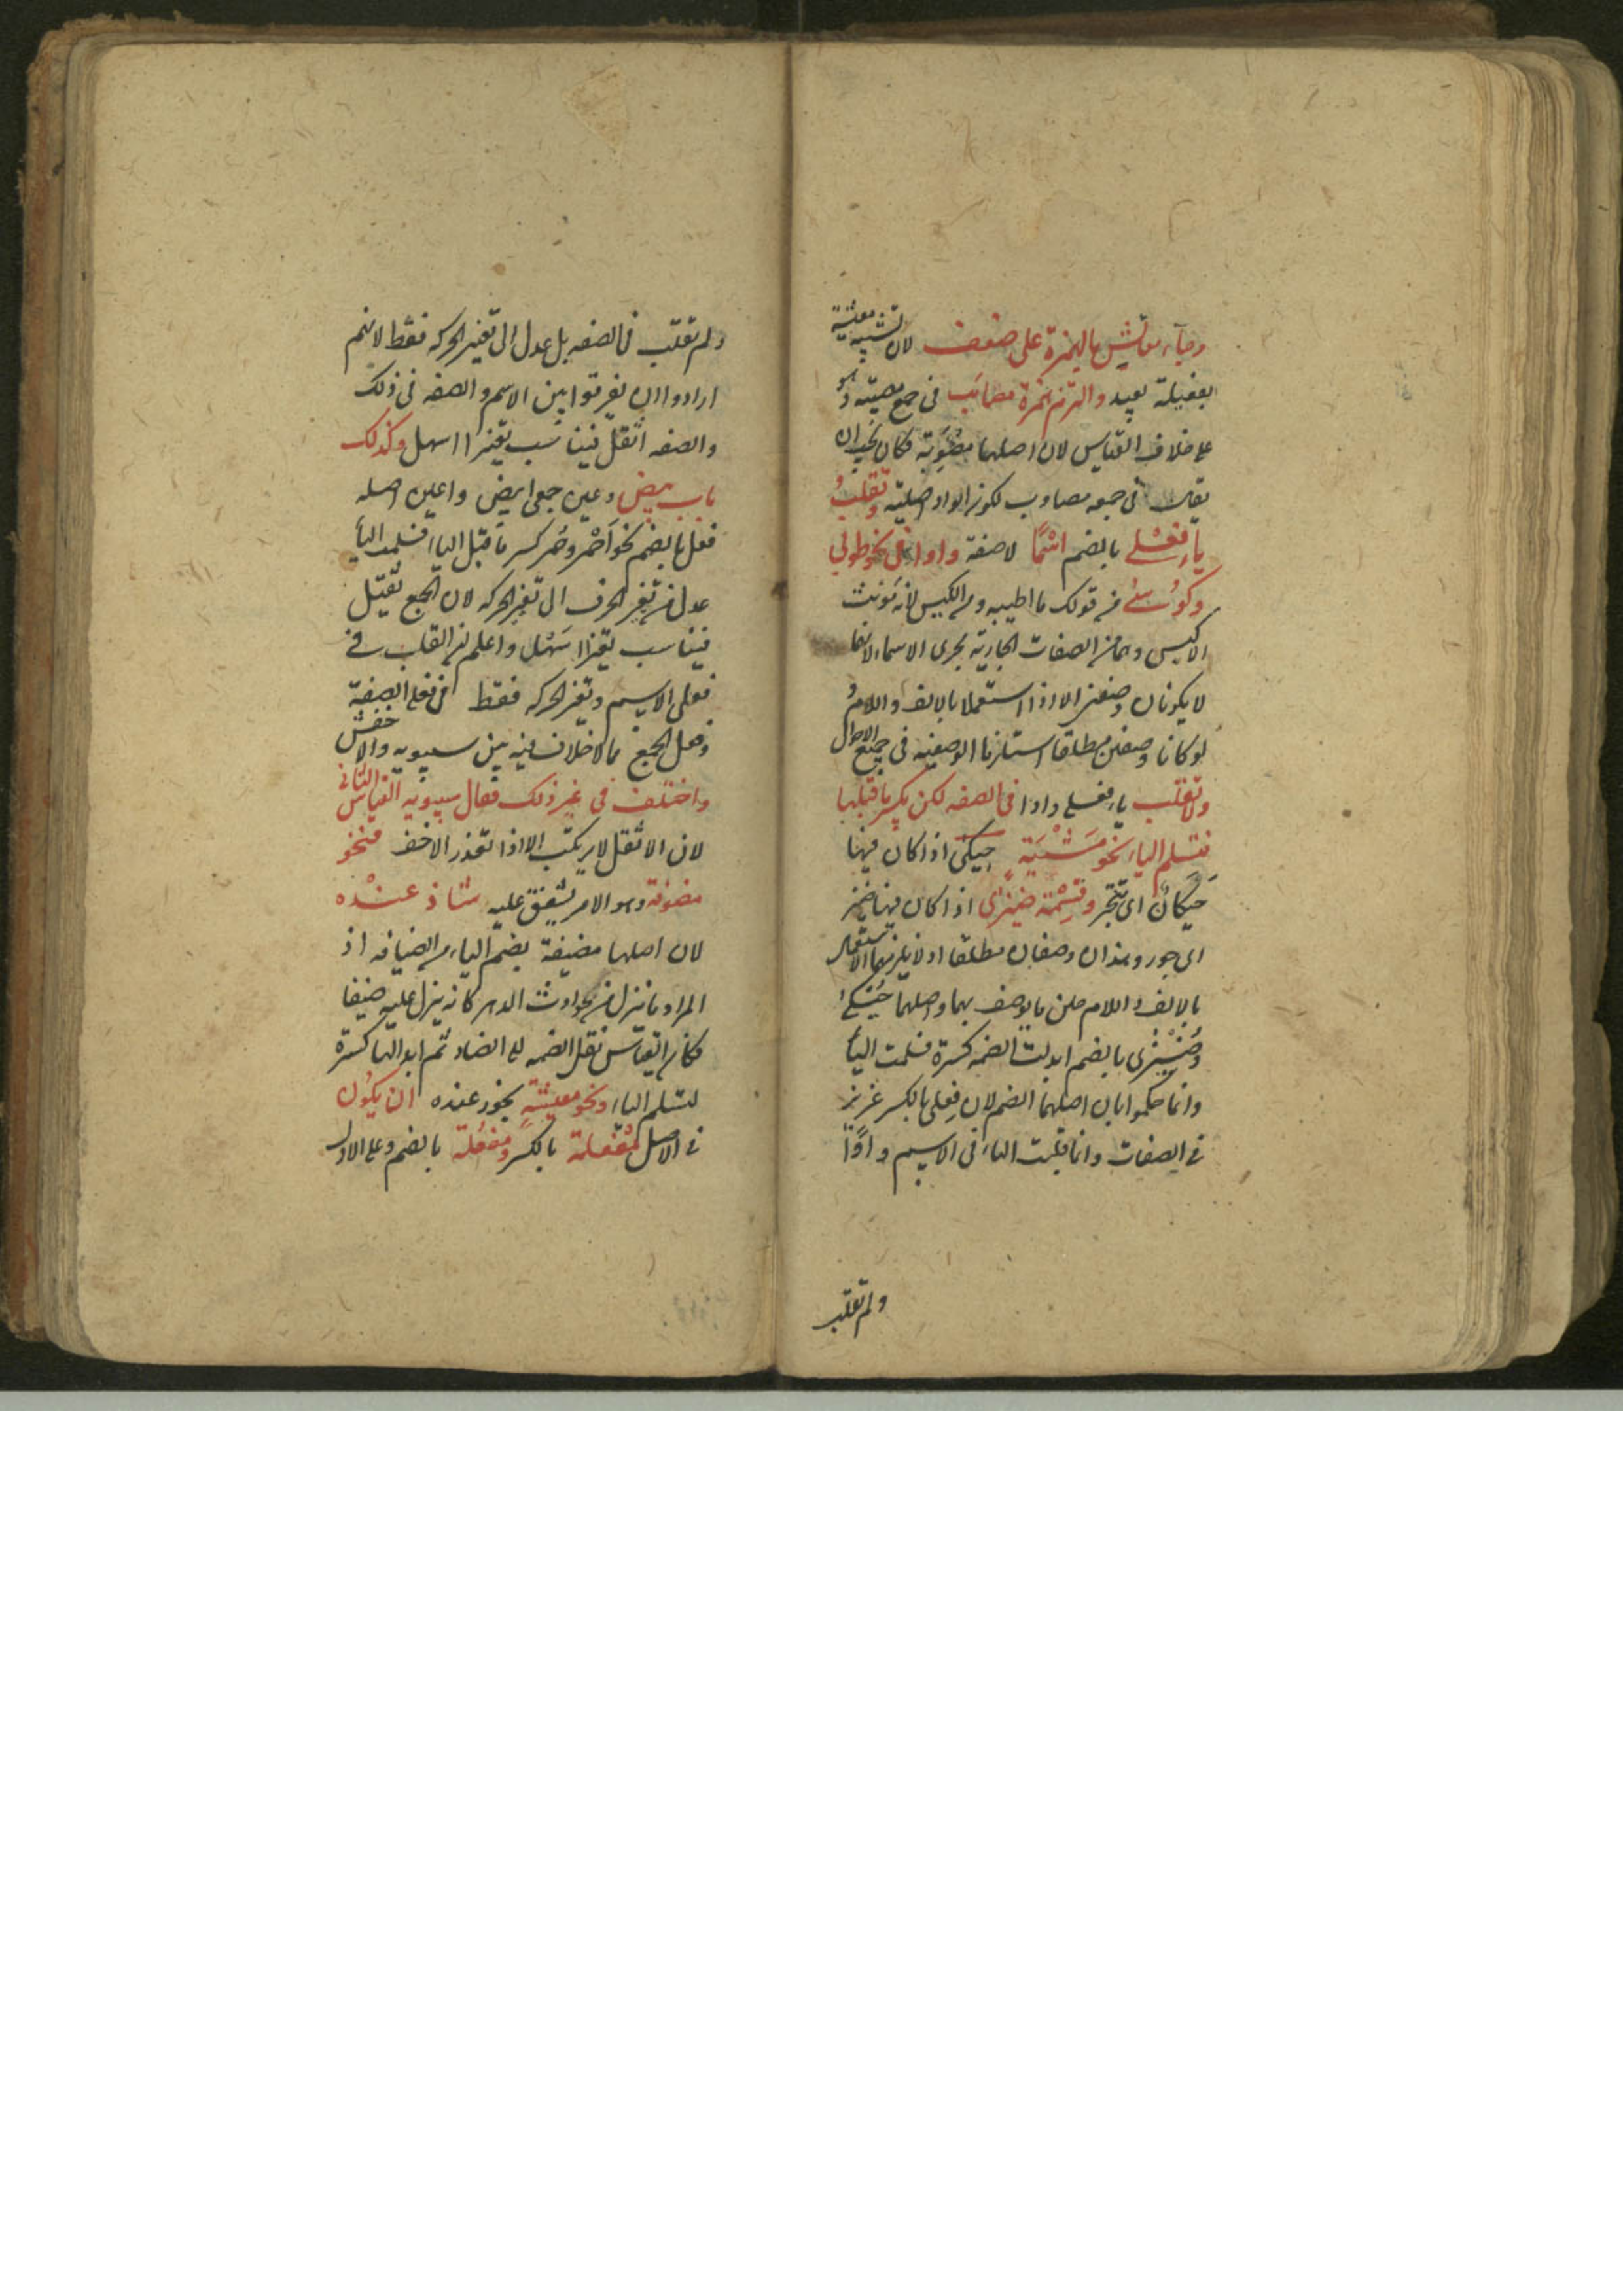 وجاء معائش بالهمزة على ضعف لان تشبيه معيشة
بفعيلة بعيد والتزم همزة مصائب فى جمع مصيبة وهو
على خلاف القياس لان اصلها مصوبة فكان يجب ان
يقال فى جمعه مصاوب لكون الواو اصلية وتقلب
ياء فعلى بالضم اسمًا لا صفة واوا فى نحو طوبى
وكوسى من قولك ما اطيبه ومن الكيس لانه مونث
الاكيس وهما من الصفات الجارية مجرى الاسماء لانهما
لا يكونان وصفين الا اذا استعملا بالالف واللام
لو كانا وصفين مطلقا استلزما الوصفية فى جميع الاحوال
ولا تقلب ياء فعلى واوا فى الصفه لكن يكسر ما قبلها
فتسلم الياء نحو مشية حيكى اذا كان فيها
حيكان اى تبختر وقسمة ضيزى اذا كان فيها ضيز
اى جور وهذان وصفان مطلقا اذ لا يلزمهما الاستعمال
بالالف واللام حين ما يوصف بهما واصلهما حُيْكى
وضُيْزى بالضم ابدلت الضمه كسرة فسلمت الياء
وانما حكموا بان اصلهما الضم لان فِعلى بالكسر عزيز
فى الصفات وانما قلبت الياء فى الاسم واوًا
ولم تقلب
ولم تقلب فى الصفه بل عدل الى تغيير الحركه فقط لانهم
ارادوا ان يفرقوا بين الاسم والصفه فى ذلك
والصفه اثقل فيناسب تغييرا اسهل وكذلك
باب بيض وعين جمعى ابيض واعين اصله
فعل بالضم نحو اَحْمر وحُمر كسر ما قبل الياء فسلمت الياء
عدل من تغيير الحرف الى تغيير الحركه لان الجمع ثقيل
فيناسب تغييرا سَهْل واعلم ان القلب فى
فعلى الاسم وتغيير الحركه فقط فى فعلى الصفة
وفعل الجمع مما لا خلاف فيه بين سيبويه والاخفش
واختلف فى غير ذلك فقال سيبويه القياس الثانى
لان الاثقل لا يرتكب الا اذا تعذر الاخف فنحو
مضوفة وهو الامر يشفق عليه شاذ عنْده
لان اصلها مضيفة بضم الياء من الضيافه اذ
المراد ما نزل من حوادث الدهر كانه ينزل عليه ضيفا
فكان القياس نقل الضمه الى الضاد ثم ابدالها كسرة
لتسلم الياء ونحو معيشة يجوز عنده ان يكون
فى الاصل مفعلة بالكسر ومفعُلة بالضم وعلى الاول